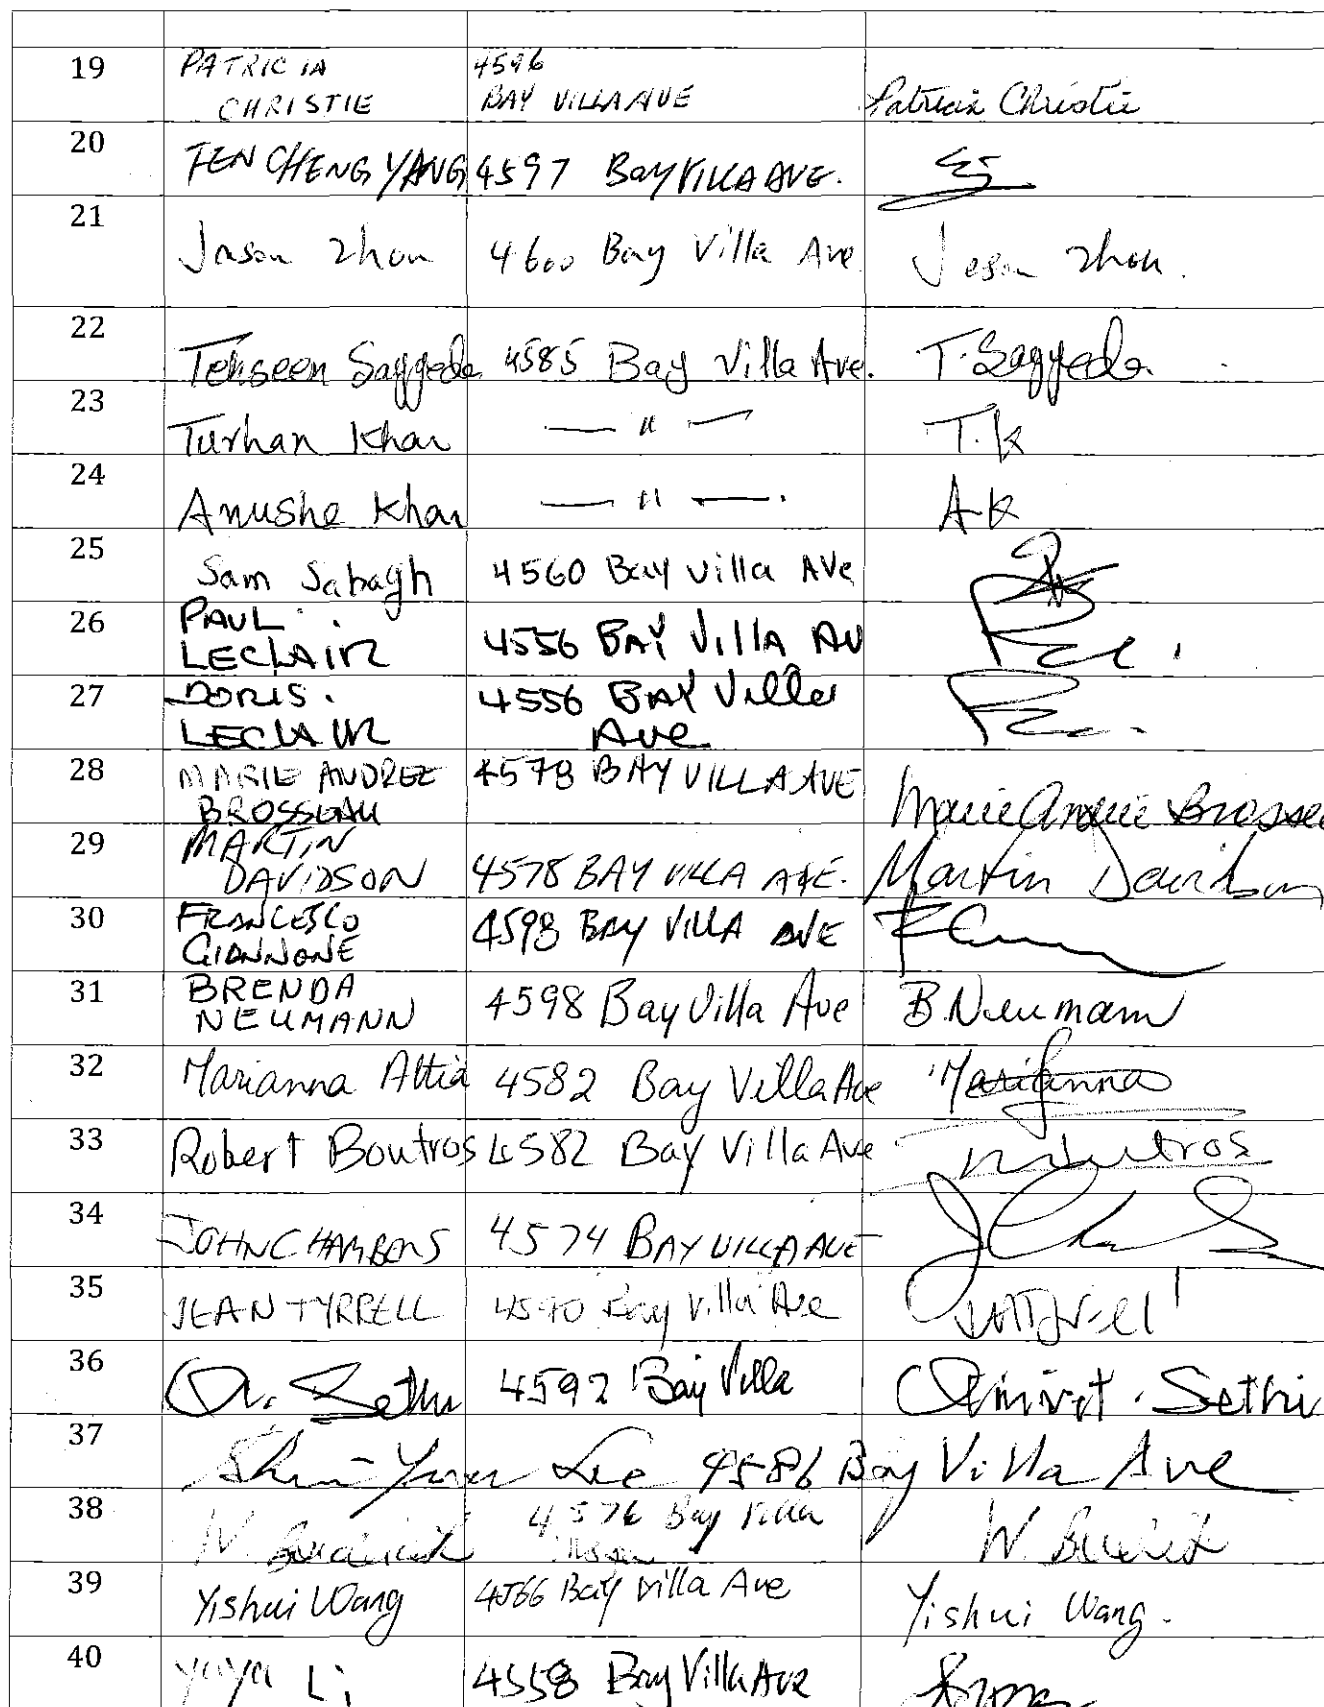 19 PATRICIA 4596
CHRISTIE BAY VILLA AVE Patricia Christie
20 FEN CHENG YANG 4597 Bay VILLA AVE.
21 Jason Zhou 4600 Bay Villa Ave Jason Zhou.
22 Tehseen Sayyeda 4585 Bay Villa Ave. T. Sayyeda
23 Turhan Khan — " — T.K
24 Anushe Khan — " — . A-K
25 Sam Sabagh 4560 Bay villa AVe
26 PAUL
LECLAIR 4556 BAY Villa AV
27 DORIS. 4556 BAY Villa
LECLAIR Ave
28 MARIE ANDREE 4578 BAY VILLA AVE
BROSSEAU Marie Andrée
29 MARTIN
DAVIDSON 4578 BAY VILLA AVE. Martin Davidson
30 FRANCESCO 4598 BAY VILLA AVE
GIANNONE
31 BRENDA 4598 Bay Villa Ave B. Neumann
NEUMANN
32 Marianna Attia 4582 Bay Villa Ave Marianna
33 Robert Boutros 4582 Bay Villa Ave Boutros
34 JOHN CHAMBERS 4574 BAY VILLA AVE
35 JEAN TYRRELL 4590 Bay Villa Ave
36 A. Sethi 4592 Bay Villa Amirit. Sethi
37 Lee 4586 Bay Villa Ave
38 W. 4576 Bay Villa W.
39 Yishui Wang 4566 Bay Villa Ave Yishui Wang.
40 yaya Li 4558 Bay Villa Ave